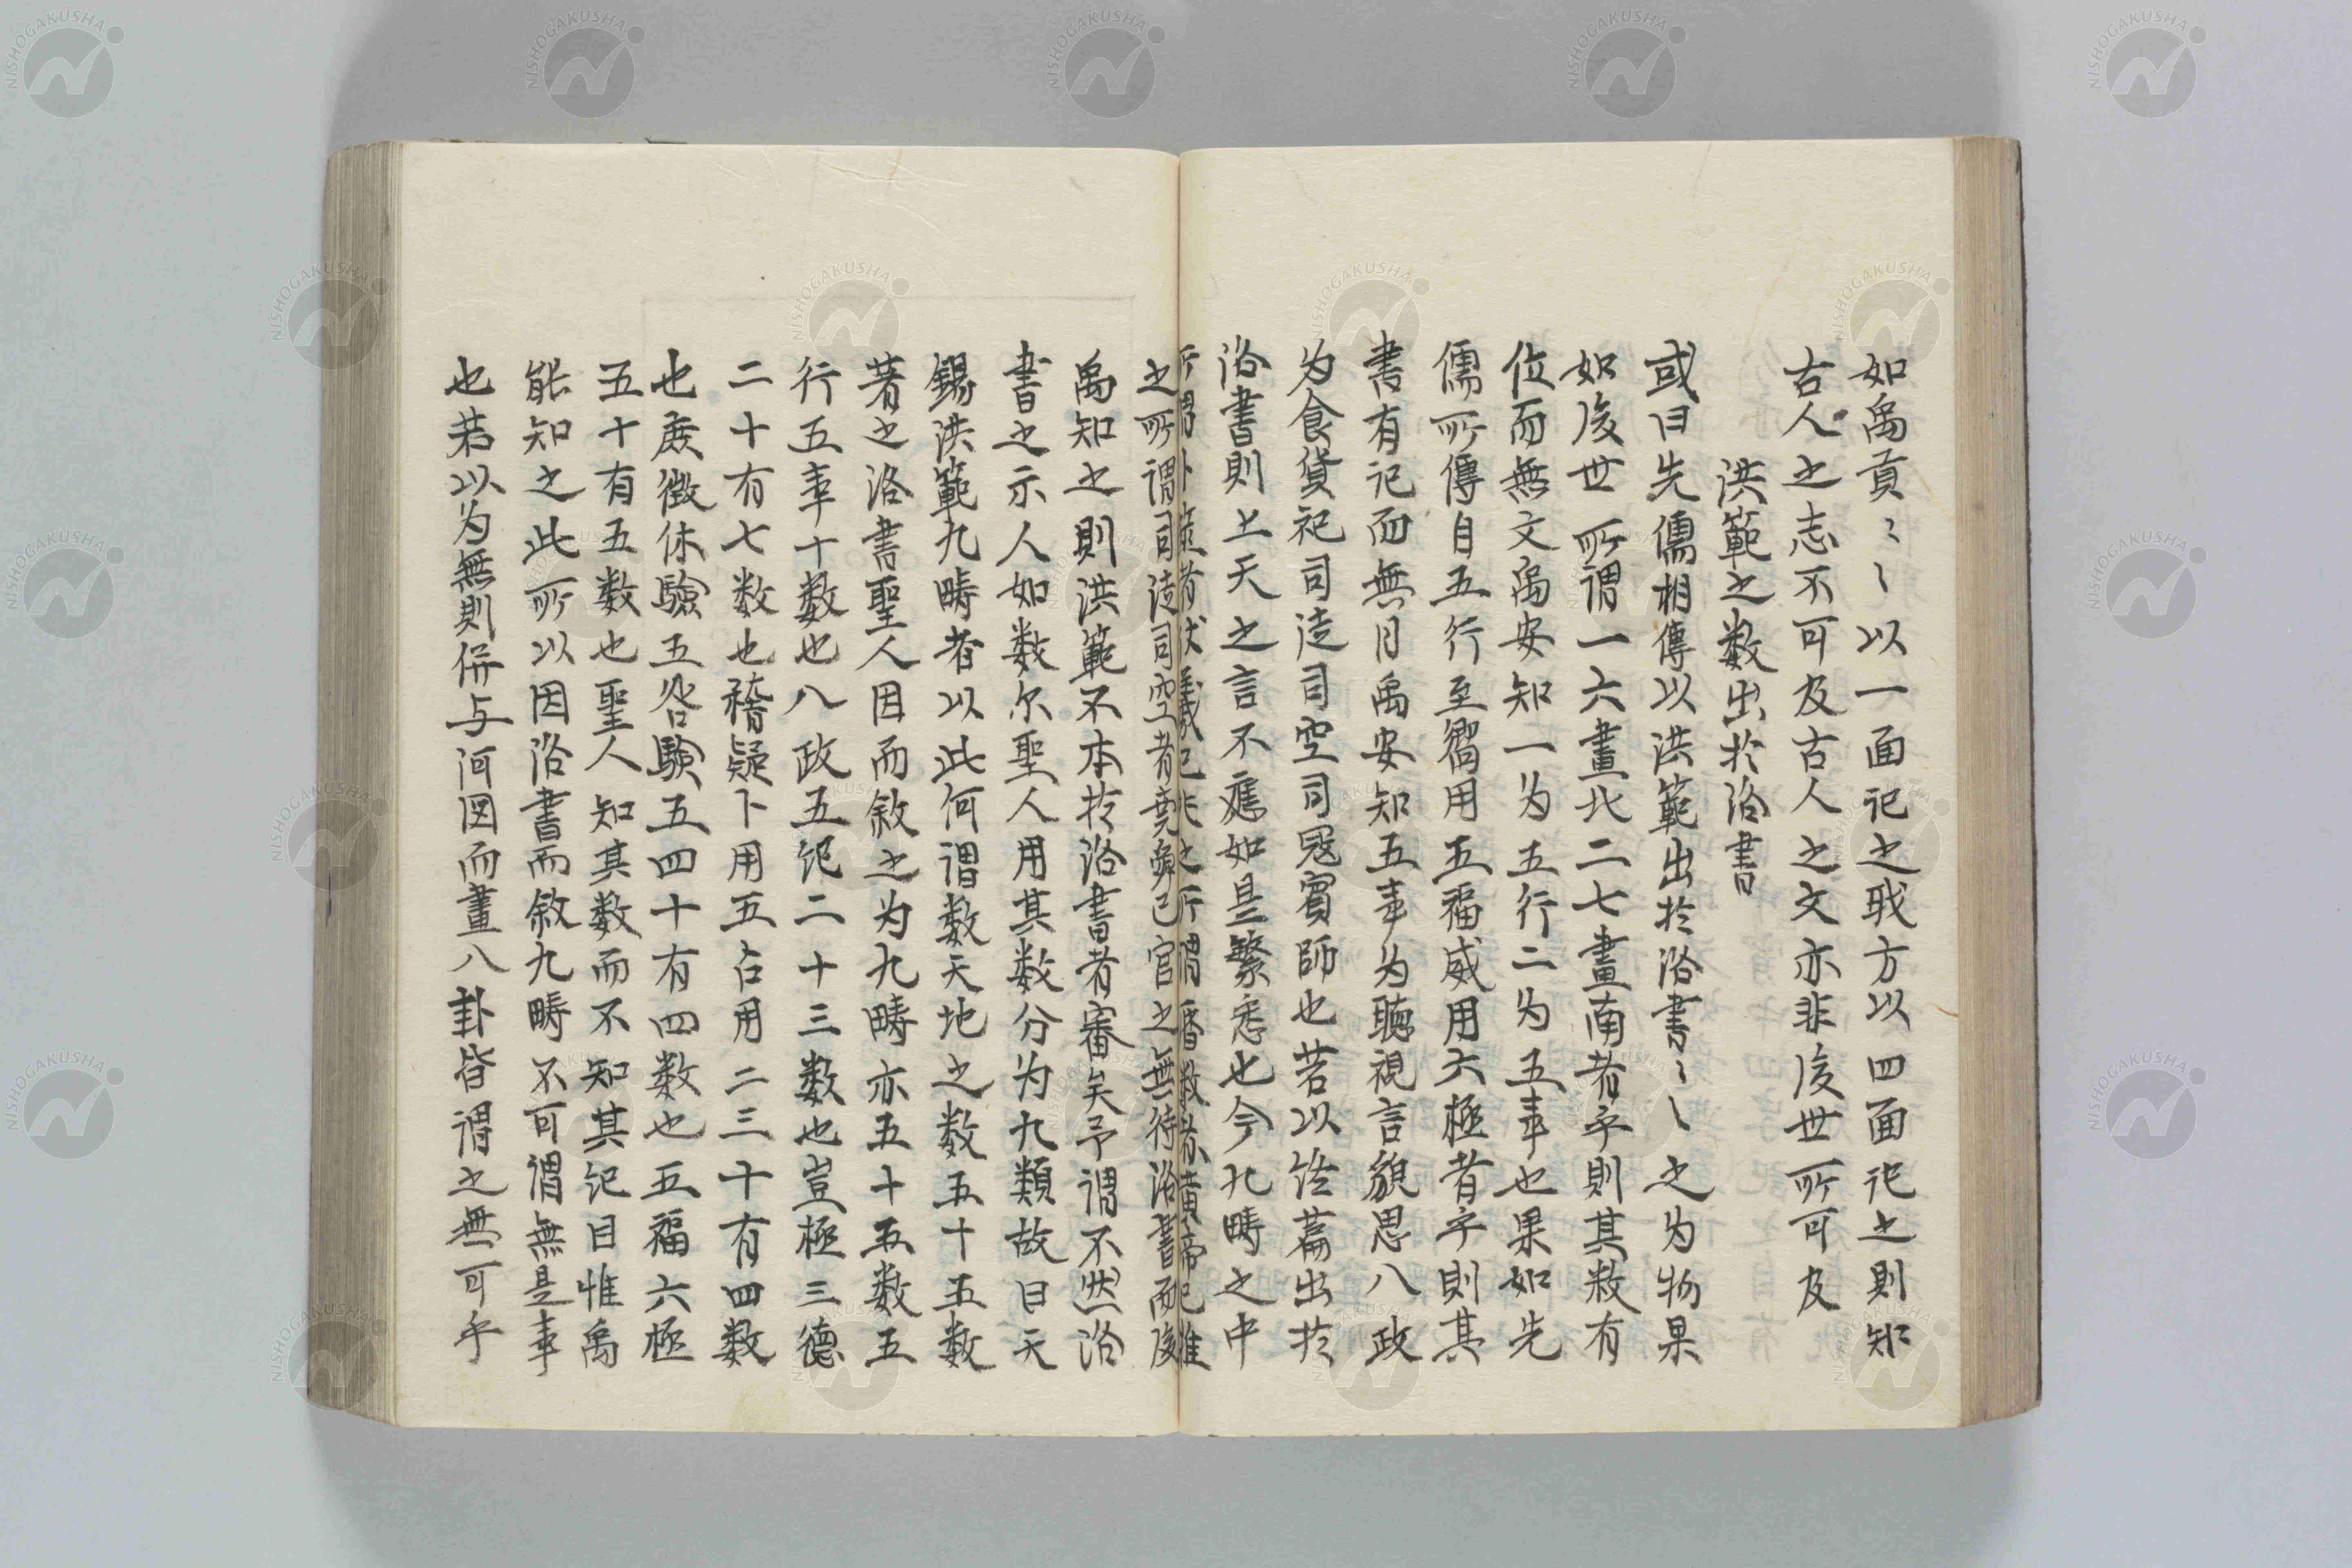 如禹貢〻〻以一面記之戢方以四面記之則知
古人之志不可及古人之文亦非後世所可及
洪範之数出於洛書
或曰先儒相傳以洪範出於洛書〻〻之为物果
如後世所谓一六畫北二七畫南者乎則其数有
位而無文禹安知一为五行二为五事也果如先
儒所傳自五行至嚮用五福威用六極者乎則其
書有記而無目禹安知五事为聽視言貌思八政
为食貨祀司徒司空司寇賓師也若以全篇出於
洛書則上天之言不應如是繁悉也今九疇之中
所謂卜筮者伏羲已作之所謂曆数者黄帝已推
之所謂司徒司空者堯舜已官之無待洛書而後
禹知之則洪範不本於洛書者審矣予謂不然洛
書之示人如数尔聖人用其数分为九類故曰天
錫洪範九疇者以此何謂数天地之数五十五数
著之洛書聖人因而敘之为九疇亦五十五数五
行五事十数也八政五紀二十三数也豈極三德
二十有七数也稽疑卜用五占用二三十有四数
也庶徵休驗五咎驗五四十有四数也五福六極
五十有五数也聖人知其数而不知其紀目惟禹
能知之此所以因洛書而敘九疇不可謂無是事
也若以为無則併与河図而畫八卦皆謂之無可乎